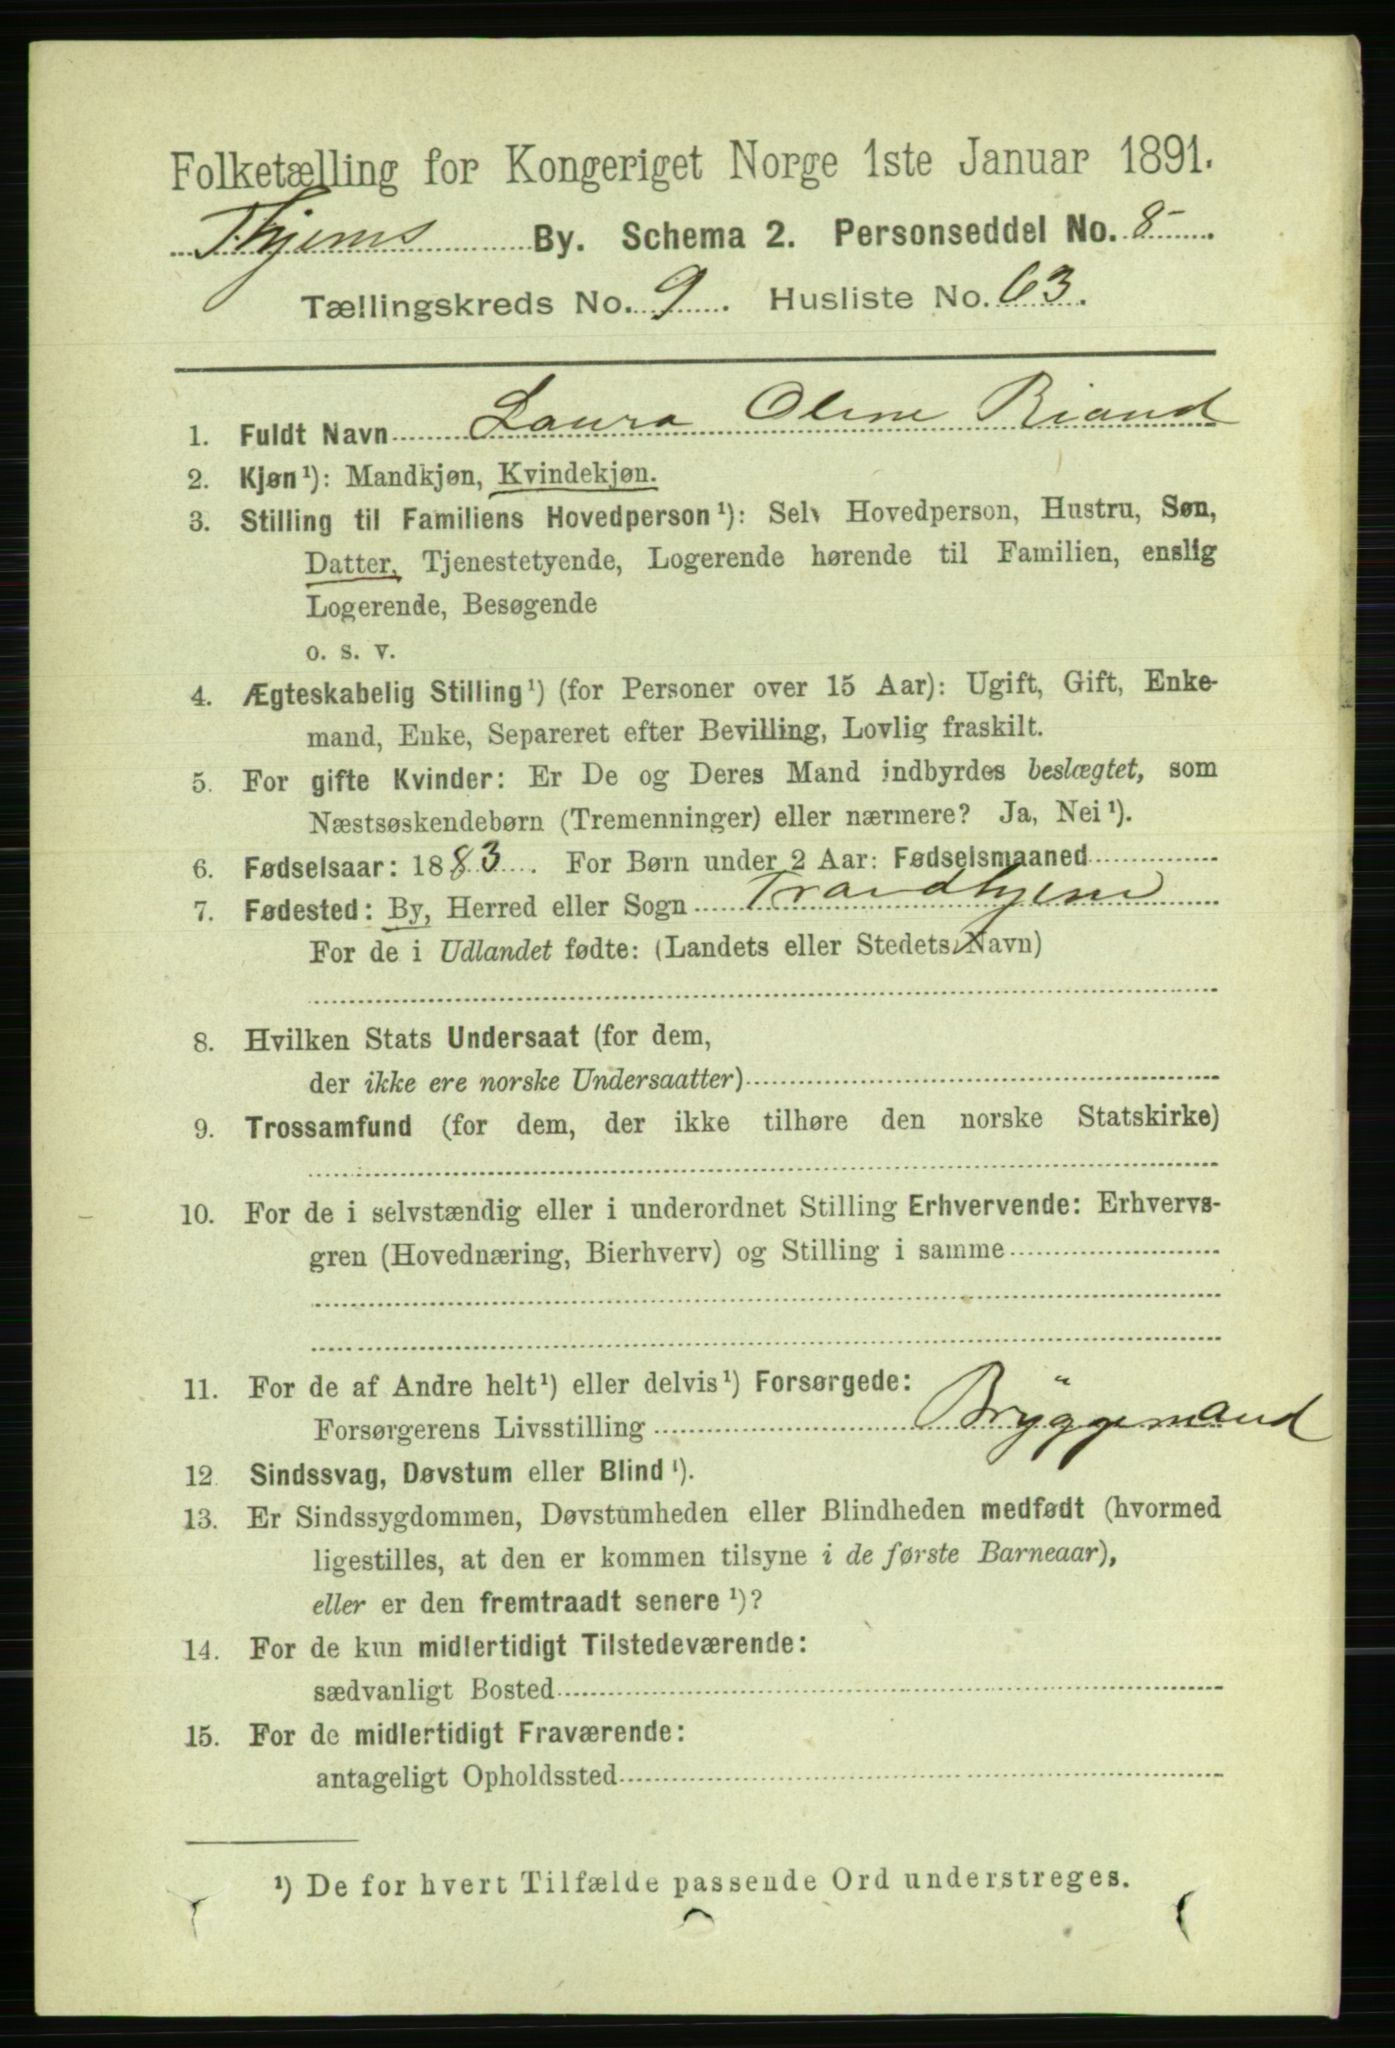 Folketælling for Kongeriget Norge 1ste Januar 1891.
Thjems By. Schema 2. Personseddel No. 8
Tællingskreds No. 9. Husliste No. 63.
1. Fuldt Navn Laura Oline Riand
2. Kjøn¹): Mandkjøn, Kvindekjøn.
3. Stilling til Familiens Hovedperson¹): Selv Hovedperson, Hustru, Søn,
Datter, Tjenestetyende, Logerende hørende til Familien, enslig
Logerende, Besøgende
o. s. v.
4. Ægteskabelig Stilling¹) (for Personer over 15 Aar): Ugift, Gift, Enke-
mand, Enke, Separeret efter Bevilling, Lovlig fraskilt.
5. For gifte Kvinder: Er De og Deres Mand indbyrdes beslægtet, som
Næstsøskendebørn (Tremenninger) eller nærmere? Ja, Nei¹).
6. Fødselsaar: 1883. For Børn under 2 Aar: Fødselsmaaned
7. Fødested: By, Herred eller Sogn Trondhjem
For de i Udlandet fødte: (Landets eller Stedets Navn)
8. Hvilken Stats Undersaat (for dem,
der ikke ere norske Undersaatter)
9. Trossamfund (for dem, der ikke tilhøre den norske Statskirke)
10. For de i selvstændig eller i underordnet Stilling Erhvervende: Erhvervs-
gren (Hovednæring, Bierhverv) og Stilling i samme
11. For de af Andre helt¹) eller delvis¹) Forsørgede:
Forsørgerens Livsstilling Bryggemand
12 Sindssvag, Døvstum eller Blind¹).
13. Er Sindssygdommen, Døvstumheden eller Blindheden medfødt (hvormed
ligestilles, at den er kommen tilsyne i de første Barneaar),
eller er den fremtraadt senere¹)?
14. For de kun midlertidigt Tilstedeværende:
sædvanligt Bosted
15. For de midlertidigt Fraværende:
antageligt Opholdssted
¹) De for hvert Tilfælde passende Ord understreges.